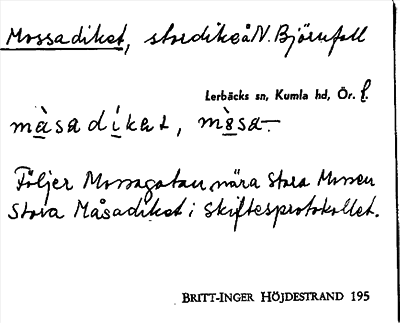 Mossadiket, stordike å N. Björnfall
Lerbäcks sn, Kumla hd, Ör. l.
màsadíkat, mòsa-
Följer Mossagatan, nära Stora Mossen
Stora Måsadiket i Skiftesprotokollet.
BRITT-INGER HÖJDESTRAND 195